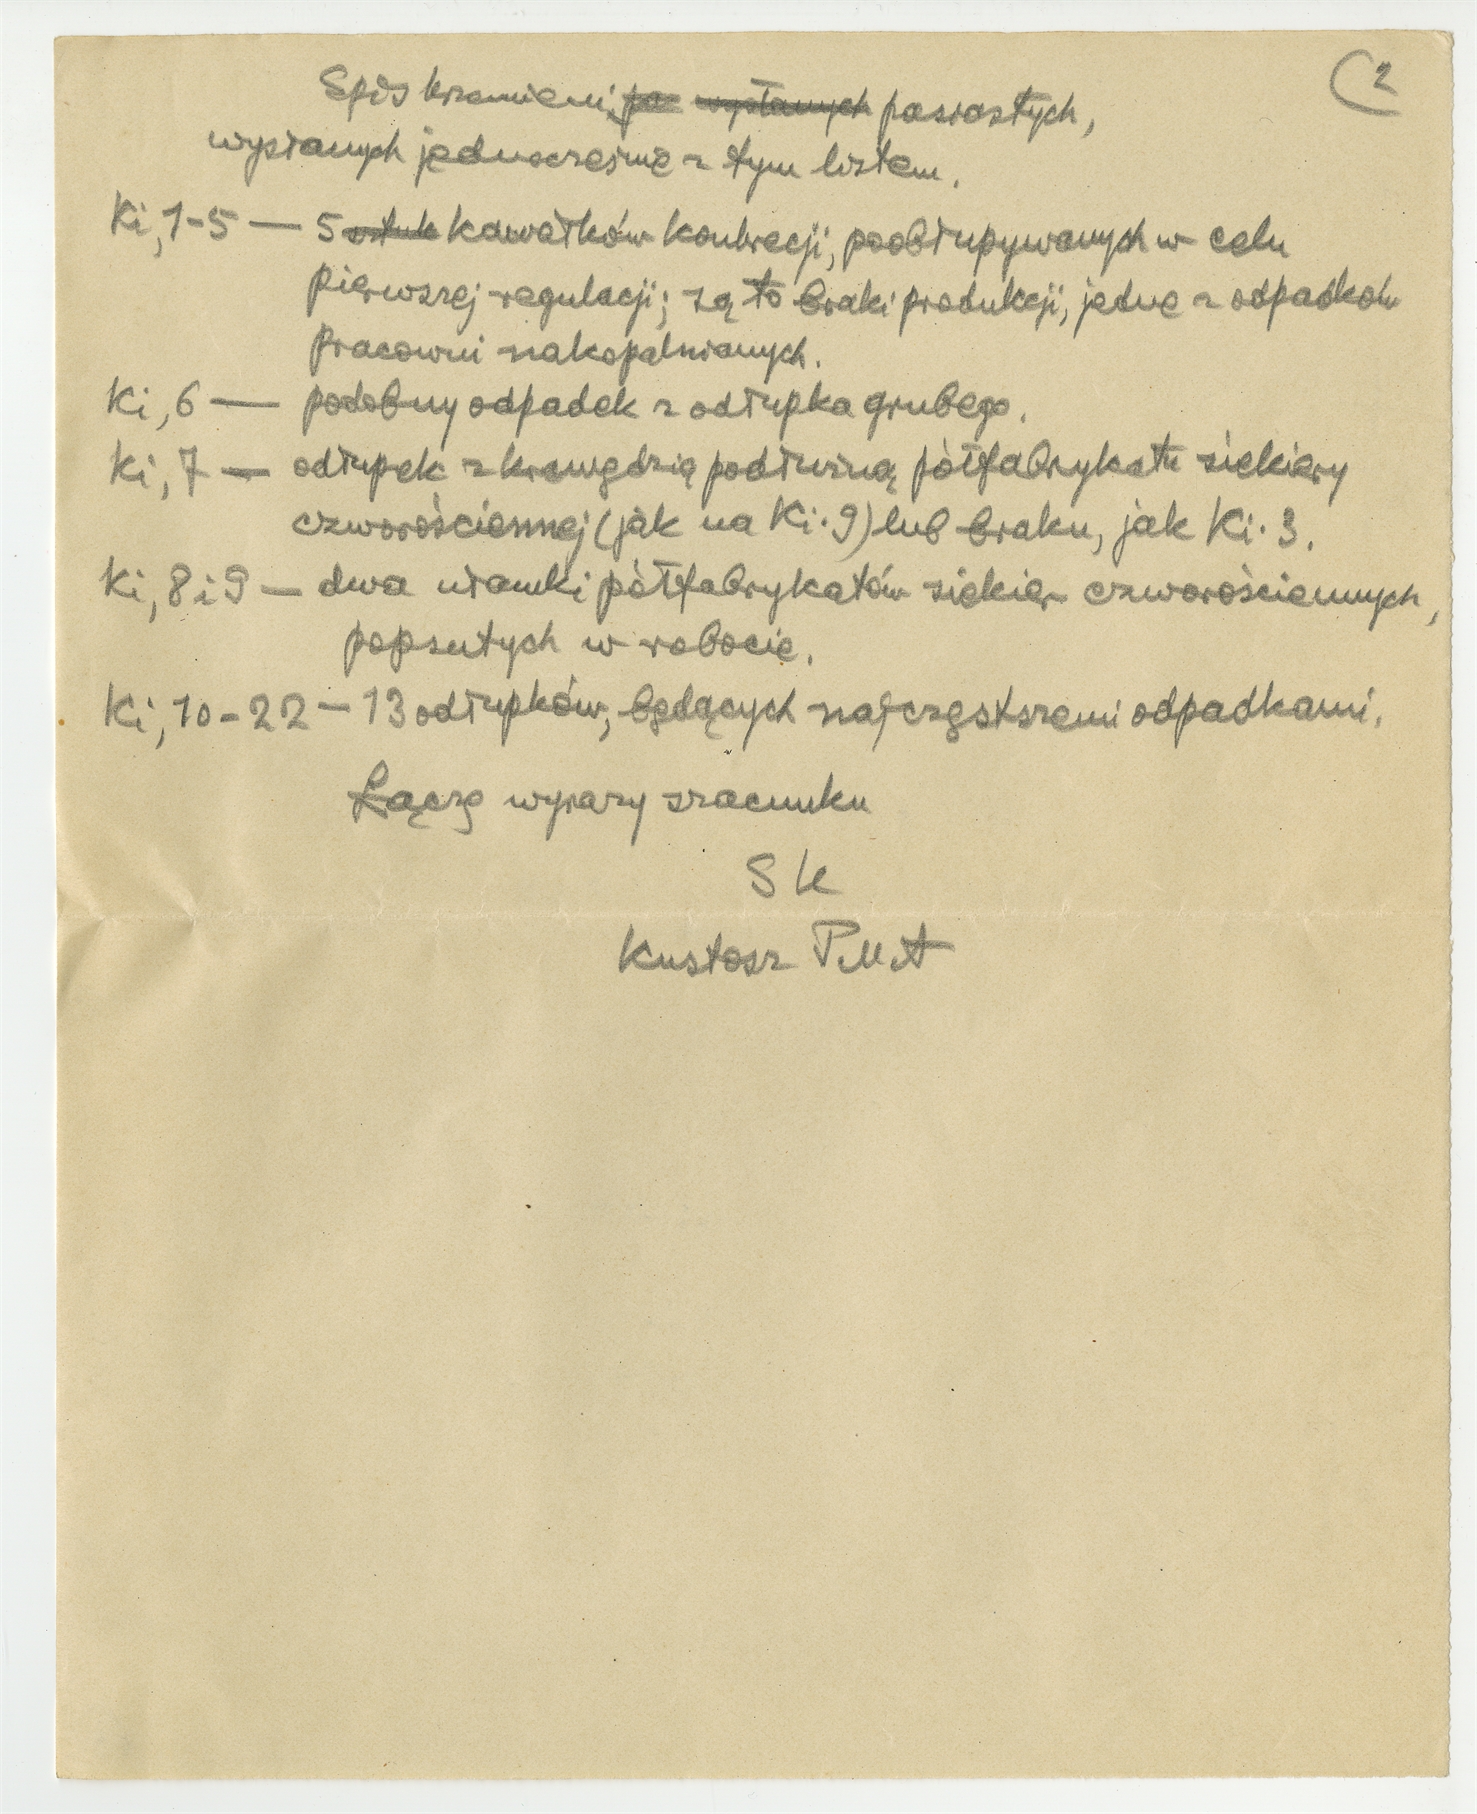 2
Spis krzemieni po wysłanych pasiastych,
wysłanych jednocześnie z tym listem.
Ki, 1-5 — 5 sztuk kawałków konkrecji, poobłupywanych w celu
pierwszej regulacji; są to braki produkcji, jedne z odpadków
pracowni nakopalnianych.
Ki, 6 — podobny odpadek z odłupka grubego.
Ki, 7 — odłupek z krawędzią podłużną półfabrykatu siekiery
czworościennej (jak na Ki. 9) lub braku, jak Ki. 3.
Ki, 8 i 9 — dwa ułamki półfabrykatów siekier czworościennych,
popsutych w robocie.
Ki, 10-22 — 13 odłupków, będących najczęstszemi odpadkami.
Łączę wyrazy szacunku
SK
Kustosz PMA